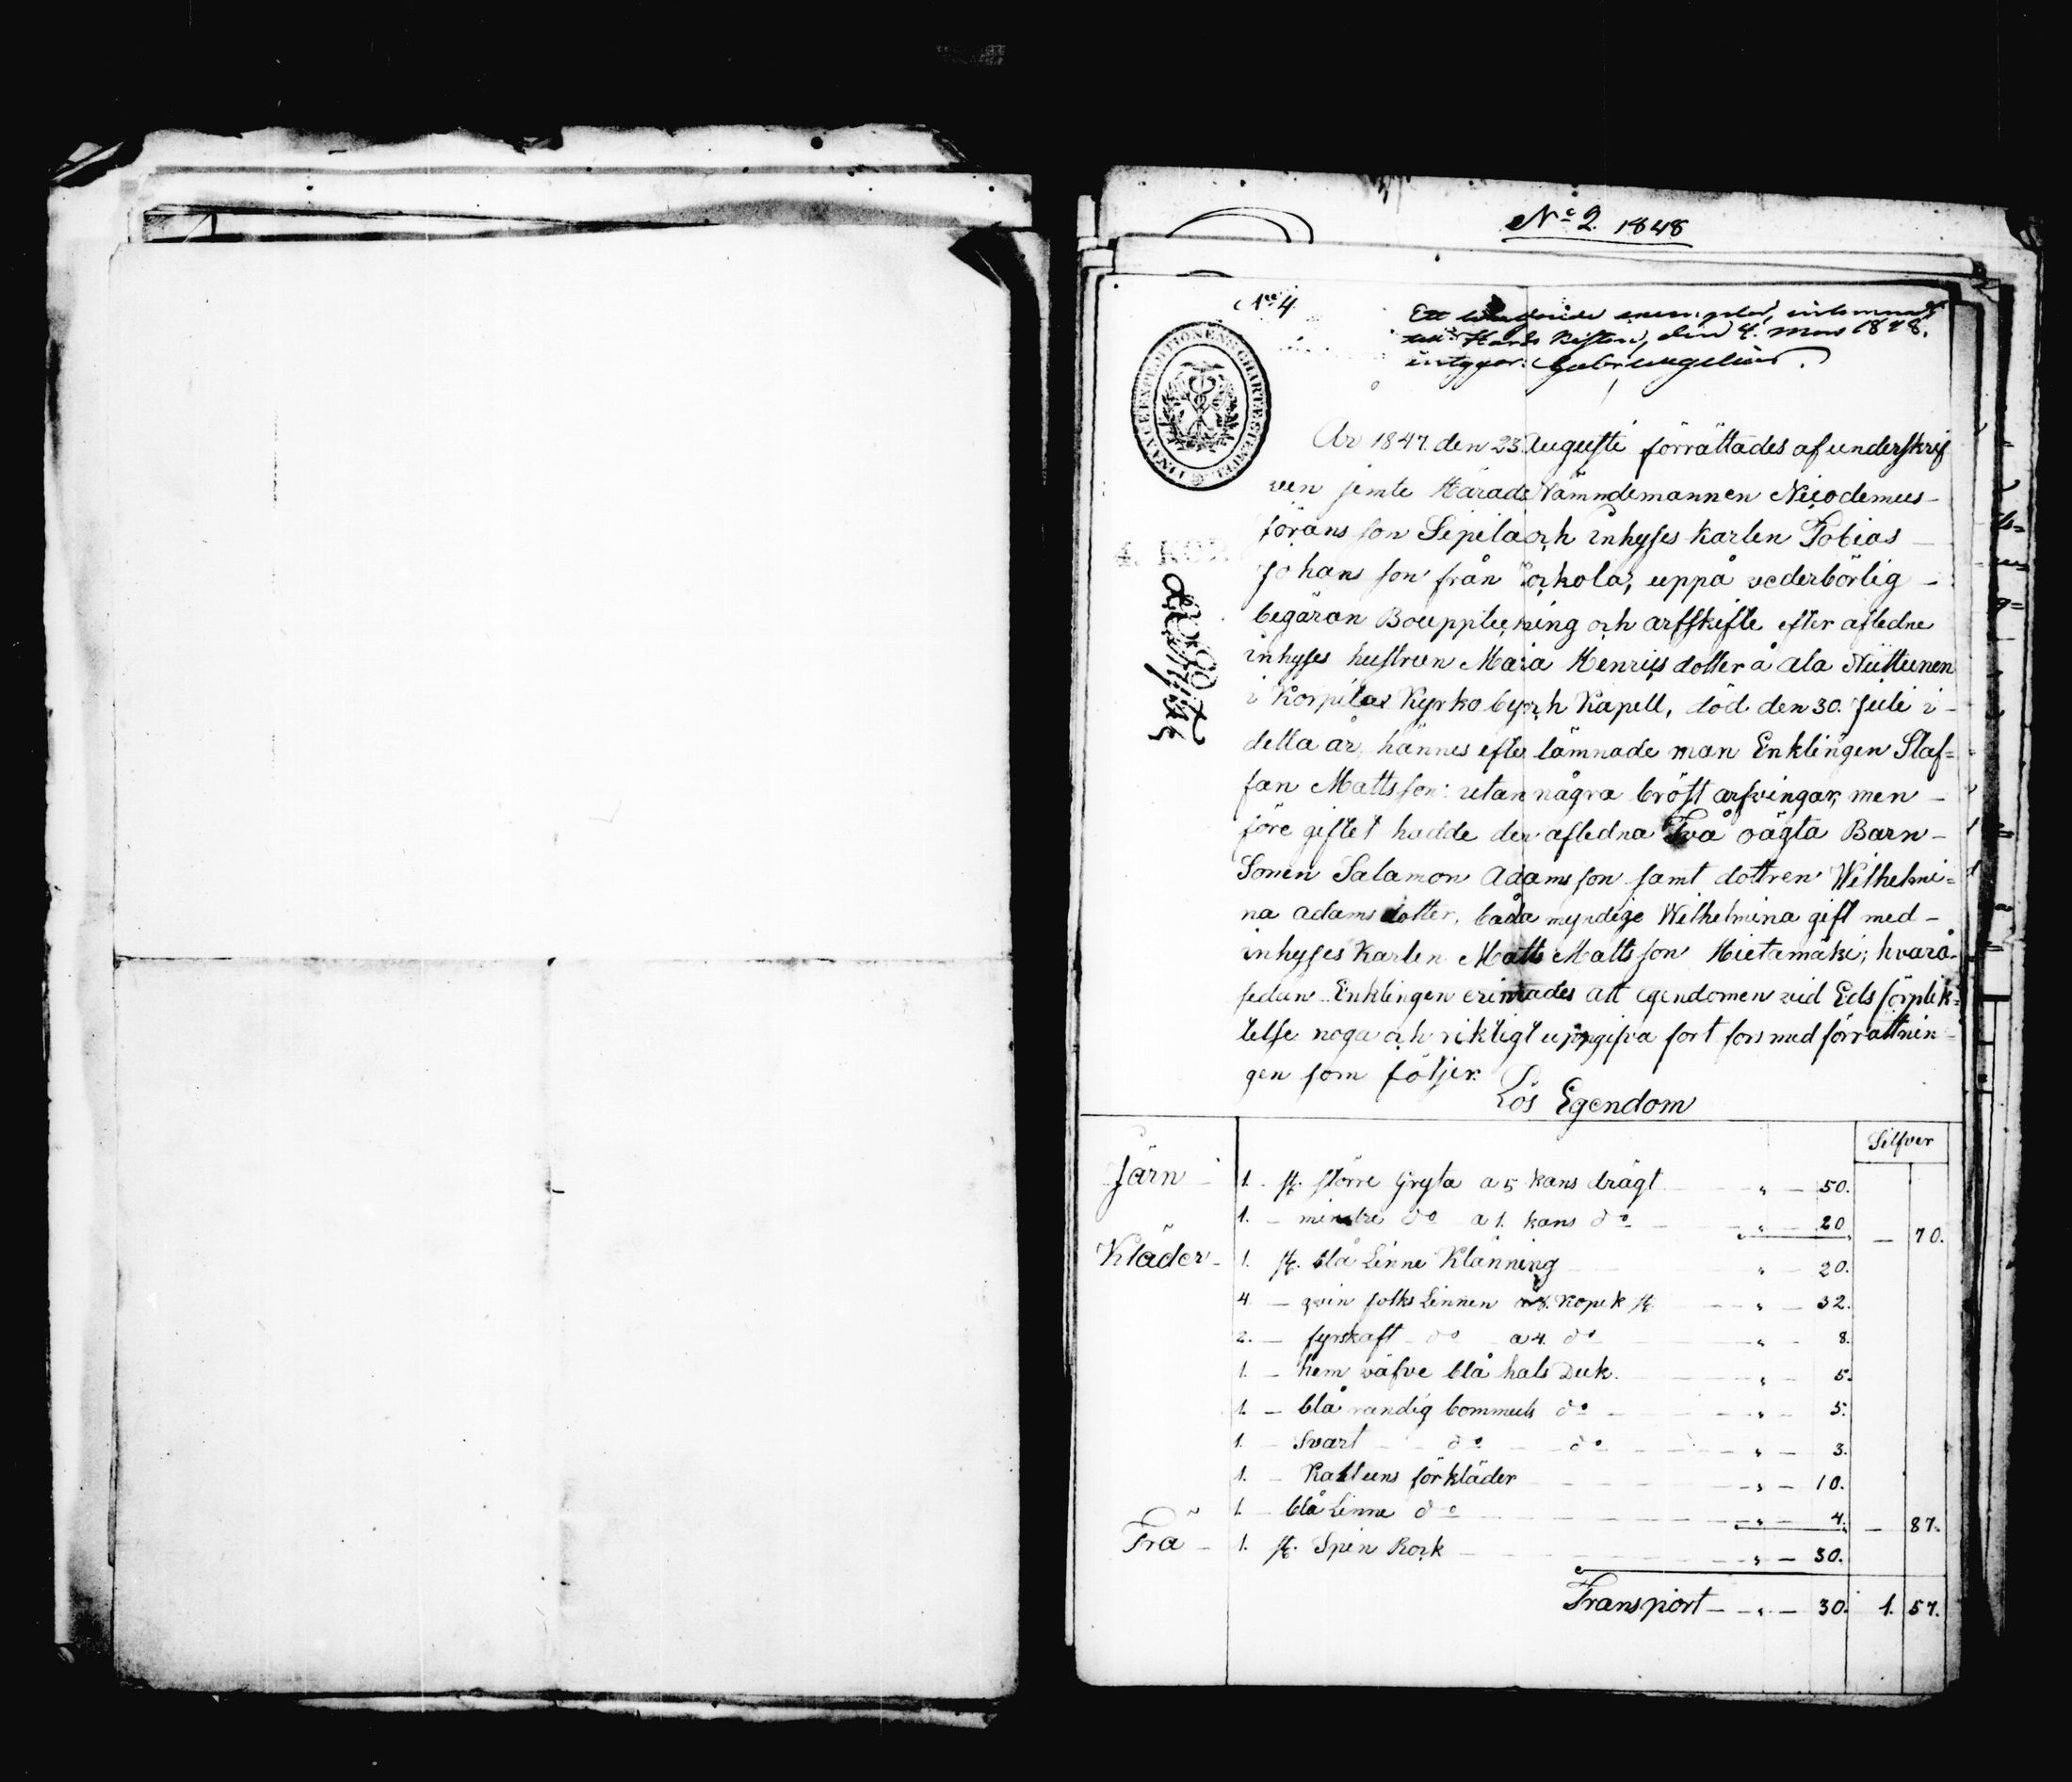 No 2. 1848
No 4
Ett exemplar, inlemnadt
den 4. Mars 1848.
intygar.
År 1847 den 23 Augusti förrättades af underskrif
ven jemte Härads Nämndemannen Nicodemus
Jörans son Sipila och inhyses karlen Tobias
Johans son från Torkola, uppå vederbörlig
begäran Bouppteckning och arfskifte efter afledne
inhyses hustrun Maja Henrics dotter å ala Niittunen
i Korpilax Kyrko by och Kapell, död den 30. Juli i
detta år, hännes efter lämnade man Enklingen Staf=
fan Matts son: utan några bröst arfvingar, men
före giftet hadde den afledna Två oägta Barn
Sonen Salamon Adams son samt dottren Wilhelmi=
na adams dotter, båda myndige Wilhelmina gift med
inhyses Karlen Matts Matts son Hietamäki; hvarå
sedan Enklingen erinrades att egendomen vid Eds förplik=
telse noga och riktigt uppgifva fort fors med förrättnin
gen som följer:
Lös Egendom
Silfver
Järn 1. st. större Gryta a 5 kans drägt " 50.
1. mindre do a 1. kans do " 20 — 70.
Kläder 1. st. blå Linne Klänning " 20.
4. qvin folks Linnen a 8. Kopek st. " 32.
2. fyrskaft do a 4. do " 8.
1. hem väfve blå hals Duk. " 5.
1. blå randig bommuls do " 5.
1. Svart do do " 3.
1. Kattuns förkläder " 10.
1. blå Linne do " 4. — 87.
Trä 1. st. Spin Rock " 30.
Transport " 30. 1. 57.